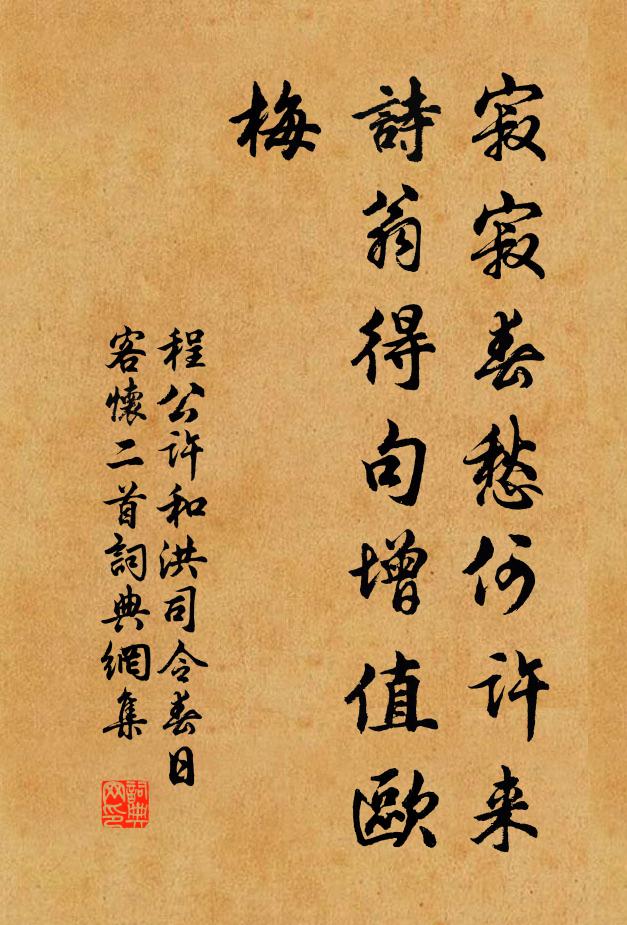 寂寂春愁何許来
詩翁得句增值歐
梅
程公許和洪司令春日
客懷二首詞典網集
詞典
网印